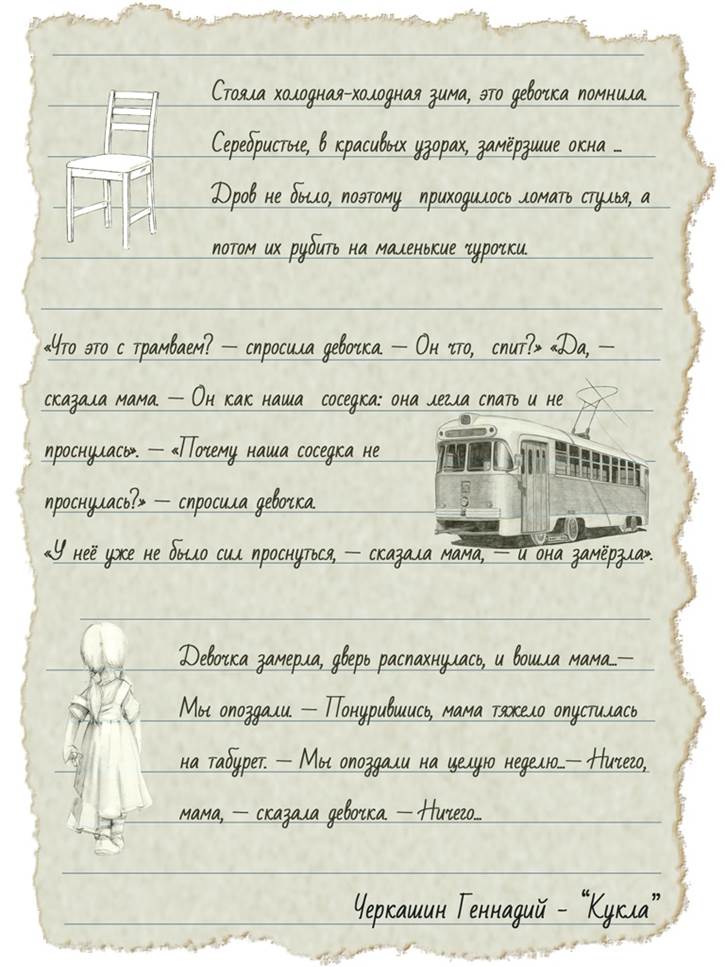 Стояла холодная-холодная зима, это девочка помнила.
Серебристые, в красивых узорах, замёрзшие окна ...
Дров не было, поэтому приходилось ломать стулья, а
потом их рубить на маленькие чурочки.
«Что это с трамваем? — спросила девочка. — Он что, спит?» «Да, —
сказала мама. — Он как наша соседка: она легла спать и не
проснулась». — «Почему наша соседка не
проснулась?» — спросила девочка.
«У неё уже не было сил проснуться, — сказала мама, — и она замёрзла».
Девочка замерла, дверь распахнулась, и вошла мама...—
Мы опоздали. — Понурившись, мама тяжело опустилась
на табурет. — Мы опоздали на целую неделю...— Ничего,
мама, — сказала девочка. — Ничего...
Черкашин Геннадий - “Кукла”